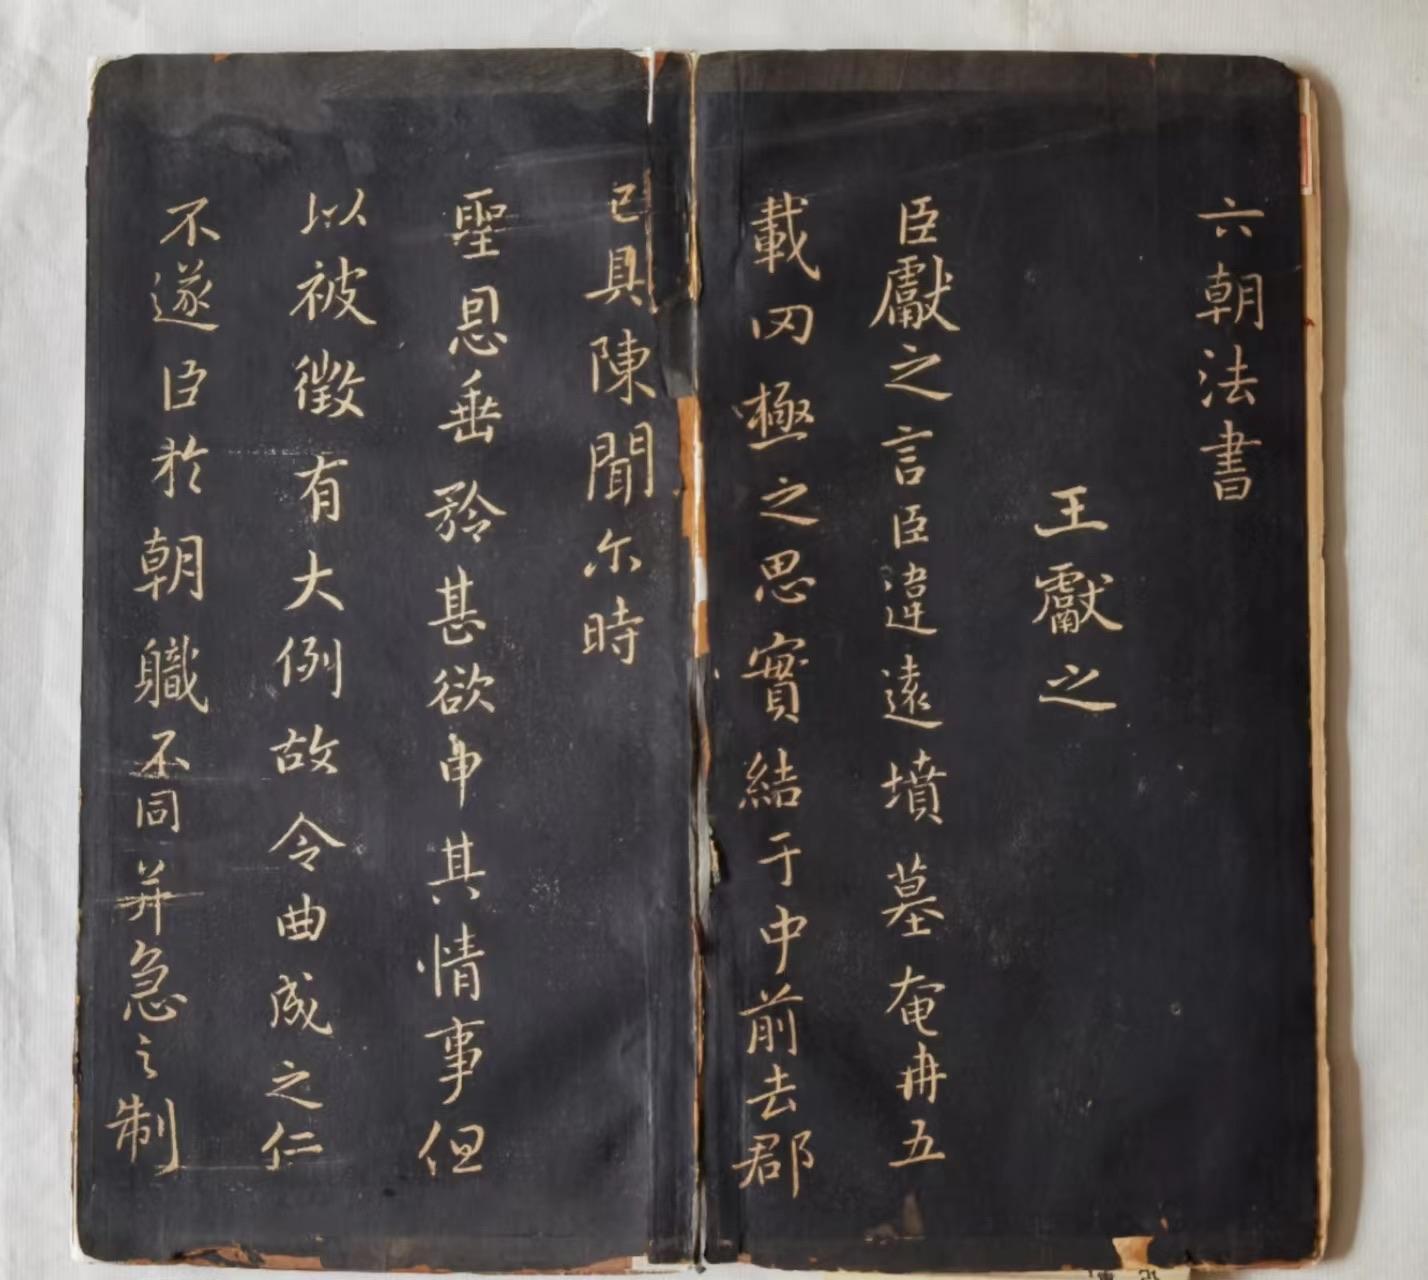 六朝法書
王獻之
臣獻之言臣違遠墳墓奄冉五
載罔極之思實結于中前去郡
已具陳聞尓時
聖恩垂矜甚欲申其情事但
以被徵有大例故令曲成之仁
不遂臣於朝職不同并急之制